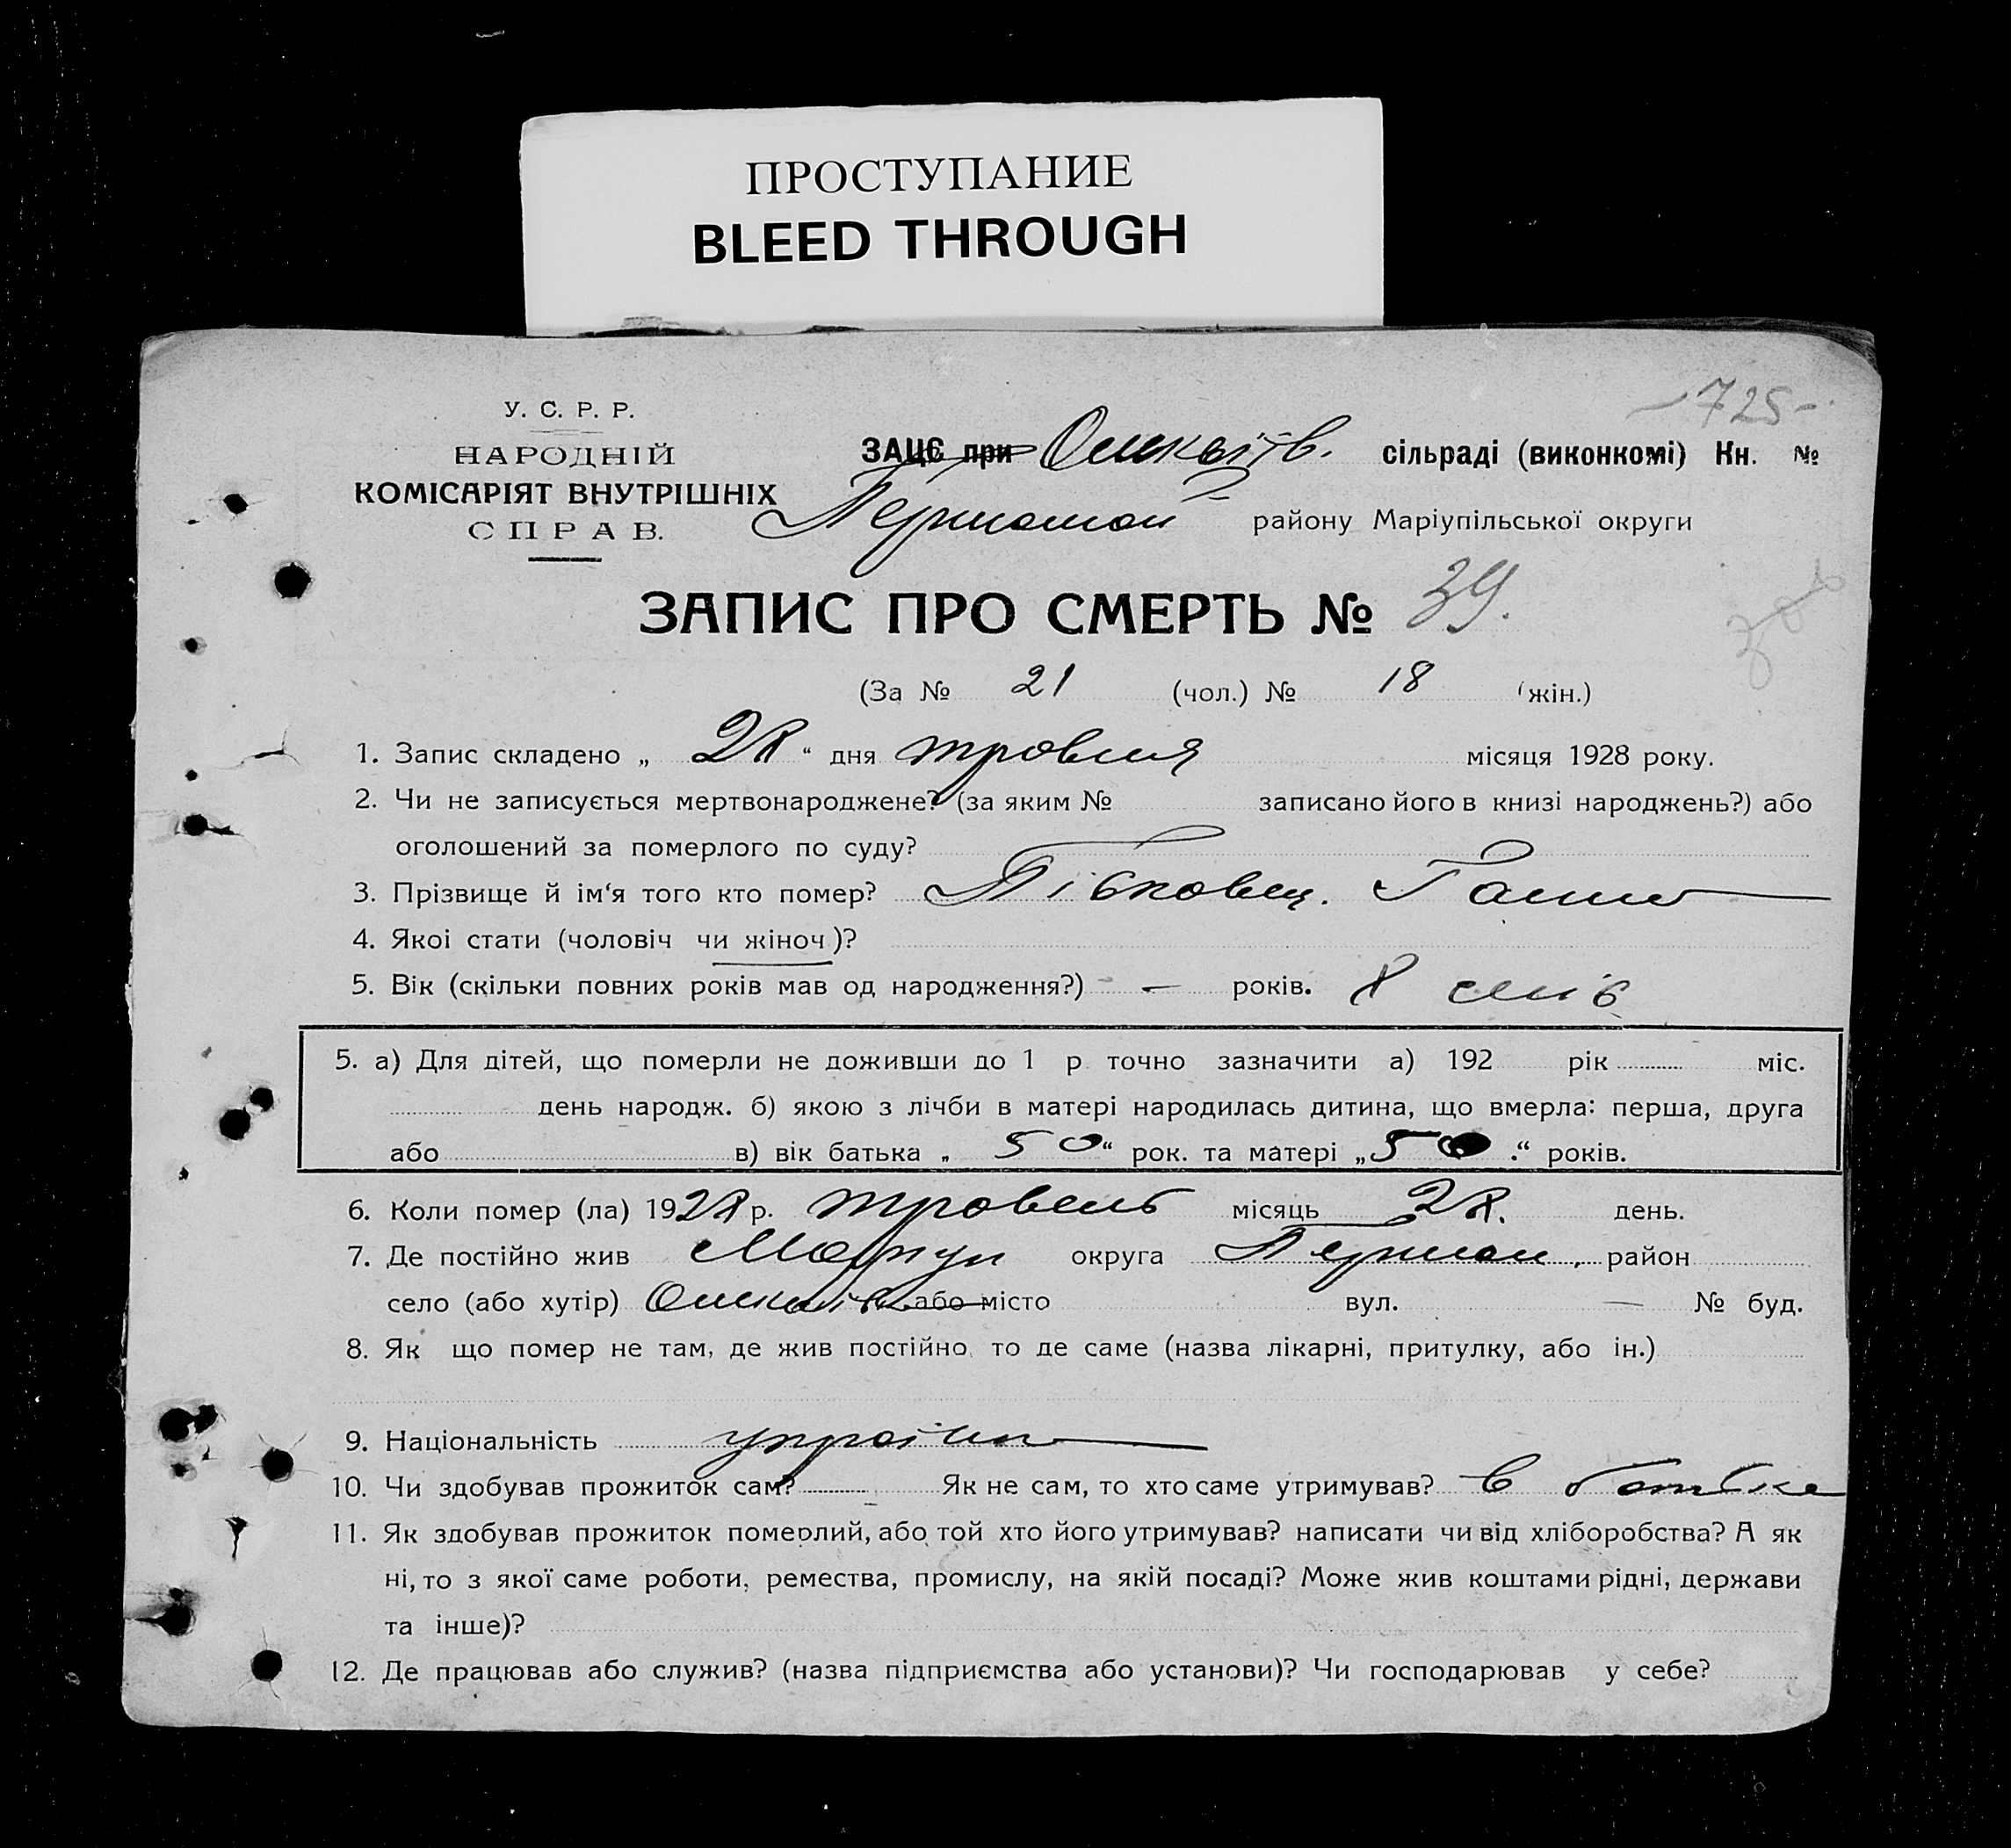 ПРОСТУПАНИЕ
BLEED THROUGH
725
У. С. Р. Р.
НАРОДНІЙ
КОМІСАРІЯТ ВНУТРІШНІХ
СПРАВ.
ЗАЦЄ при сільраді (виконкомі) Кн. №
району Маріупільської округи
ЗАПИС ПРО СМЕРТЬ № 39.
(За № 21 (чол.) № 18 (жін.)
1. Запис складено „ 28 “ дня травня місяця 1928 року.
2. Чи не записується мертвонароджене? (за яким № записано його в книзі народжень?) або
оголошений за померлого по суду?
3. Прізвище й ім‘я того кто помер? Ганна
4. Якоі стати (чоловіч чи жіноч)?
5. Вік (скільки повних років мав од народження?) — років. 8
5. а) Для дітей, що померли не доживши до 1 р точно зазначити а) 192 рік міс.
день народж. б) якою з лічби в матері народилась дитина, що вмерла: перша, друга
або в) вік батька „ 50 “ рок. та матері „ 50 .“ років.
6. Коли помер (ла) 1928 р. травень місяць 28. день.
7. Де постійно жив Маріуп округа Першом. район
село (або хутір) або місто вул. — № буд.
8. Як що помер не там, де жив постійно то де саме (назва лікарні, притулку, або ін.)
9. Національність україн
10. Чи здобував прожиток сам? Як не сам, то хто саме утримував? в батька
11. Як здобував прожиток померлий, або той хто його утримував? написати чи від хліборобства? А як
ні, то з якої саме роботи, ремества, промислу, на якій посаді? Може жив коштами рідні, держави
та інше)?
12. Де працював або служив? (назва підприємства або установи)? Чи господарював у себе?